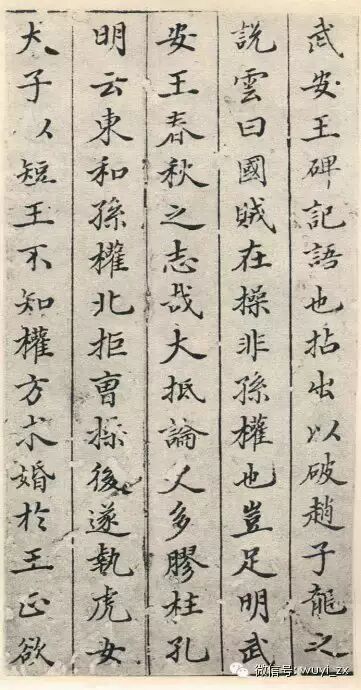 武安王碑記語也拈出以破趙子龍之
說雲曰國賊在操非孫權也豈足明武
安王春秋之志哉大抵論人多膠柱孔
明云東和孫權北拒曹操後遂執虎女
犬子以短王不知權方求婚於王正欲
微信号: wuyi_zx